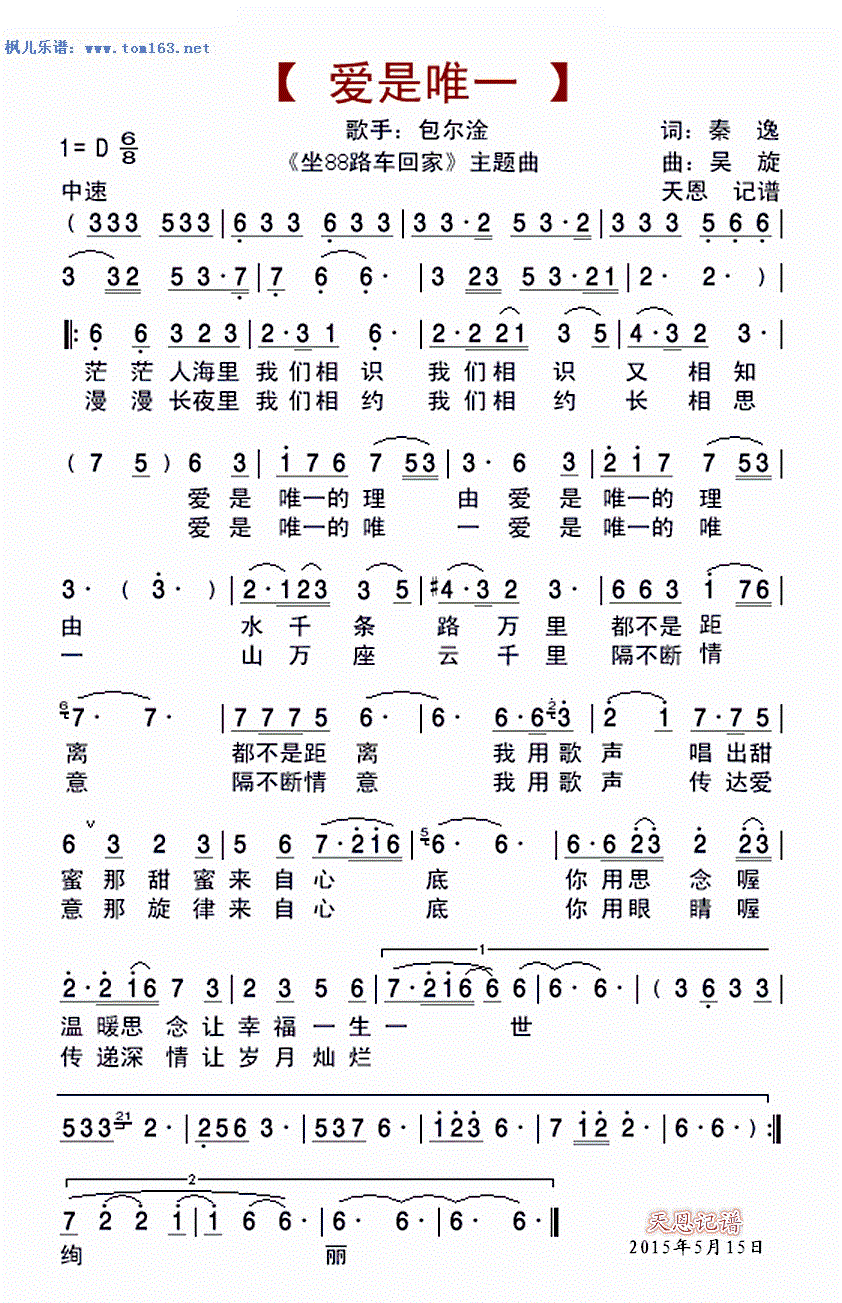 枫儿乐谱：www.tom163.net
【 爱是唯一 】
1=D 6/8 歌手：包尔淦 词：秦 逸
《坐88路车回家》主题曲 曲：吴 旋
中速 天恩 记谱
( 333 533 | 633 633 | 33·2 53·2 | 333 566 |
3 32 53·7 | 7 6 6· | 3 23 53·21 | 2· 2· ) |
‖: 6 6 323 | 2·31 6· | 2·221 3 5 | 4·32 3· |
茫 茫 人海里 我们相 识 我们相 识 又 相 知
漫 漫 长夜里 我们相 约 我们相 约 长 相 思
( 7 5 ) 6 3 | 176 7 53 | 3· 6 3 | 217 7 53 |
爱 是 唯一的 理 由 爱 是 唯一的 理
爱 是 唯一的 唯 一 爱 是 唯一的 唯
3· ( 3· ) | 2·123 3 5 | #4·32 3· | 663 1 76 |
由 水 千 条 路 万 里 都不是 距
一 山 万 座 云 千 里 隔不断 情
6 7· 7· | 7775 6· | 6· 6·6 2 3 | 2 1 7·75 |
离 都不是距 离 我 用 歌 声 唱 出 甜
意 隔不断情 意 我 用 歌 声 传 达 爱
6 v 3 2 3 | 5 6 7·216 | 5 6· 6· | 6·623 2 23 |
蜜 那 甜 蜜 来 自 心 底 你 用 思 念 喔
意 那 旋 律 来 自 心 底 你 用 眼 睛 喔
1
2·216 7 3 | 2 3 5 6 | 7·216 6 6 | 6· 6· | ( 3 6 3 3 |
温 暖 思 念 让 幸 福 一 生 一 世
传 递 深 情 让 岁 月 灿 烂
533 21 2· | 256 3· | 537 6· | 123 6· | 7 12 2· | 6· 6· ) :‖
2
7 2 2 1 | 1 6 6 6· | 6· 6· | 6· 6· ‖
绚 丽
天恩记谱
2015年5月15日